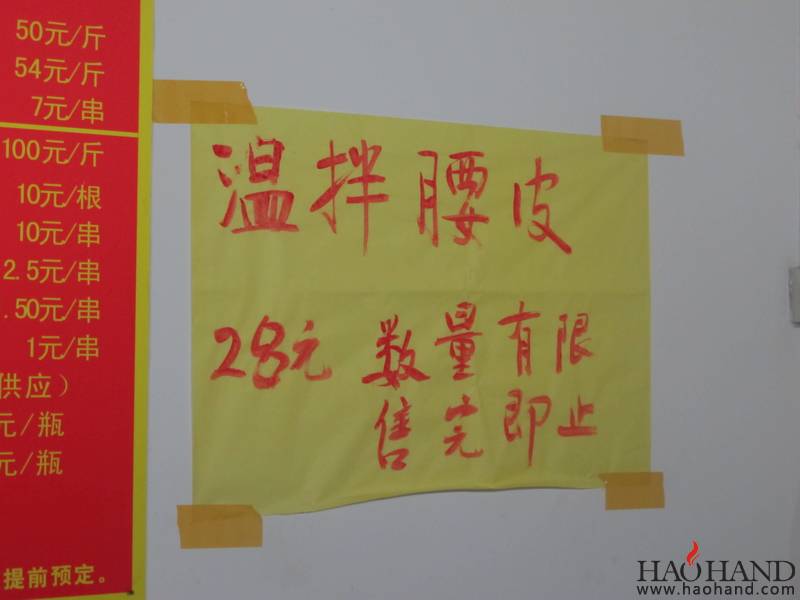 50元/斤
54元/斤
7元/串
100元/斤
10元/根
10元/串
2.5元/串
.50元/串
1元/串
供应）
元/瓶
元/瓶
提前预定。
温拌腰皮
28元 数量有限
售完即止
HAOHAND
www.haohand.com